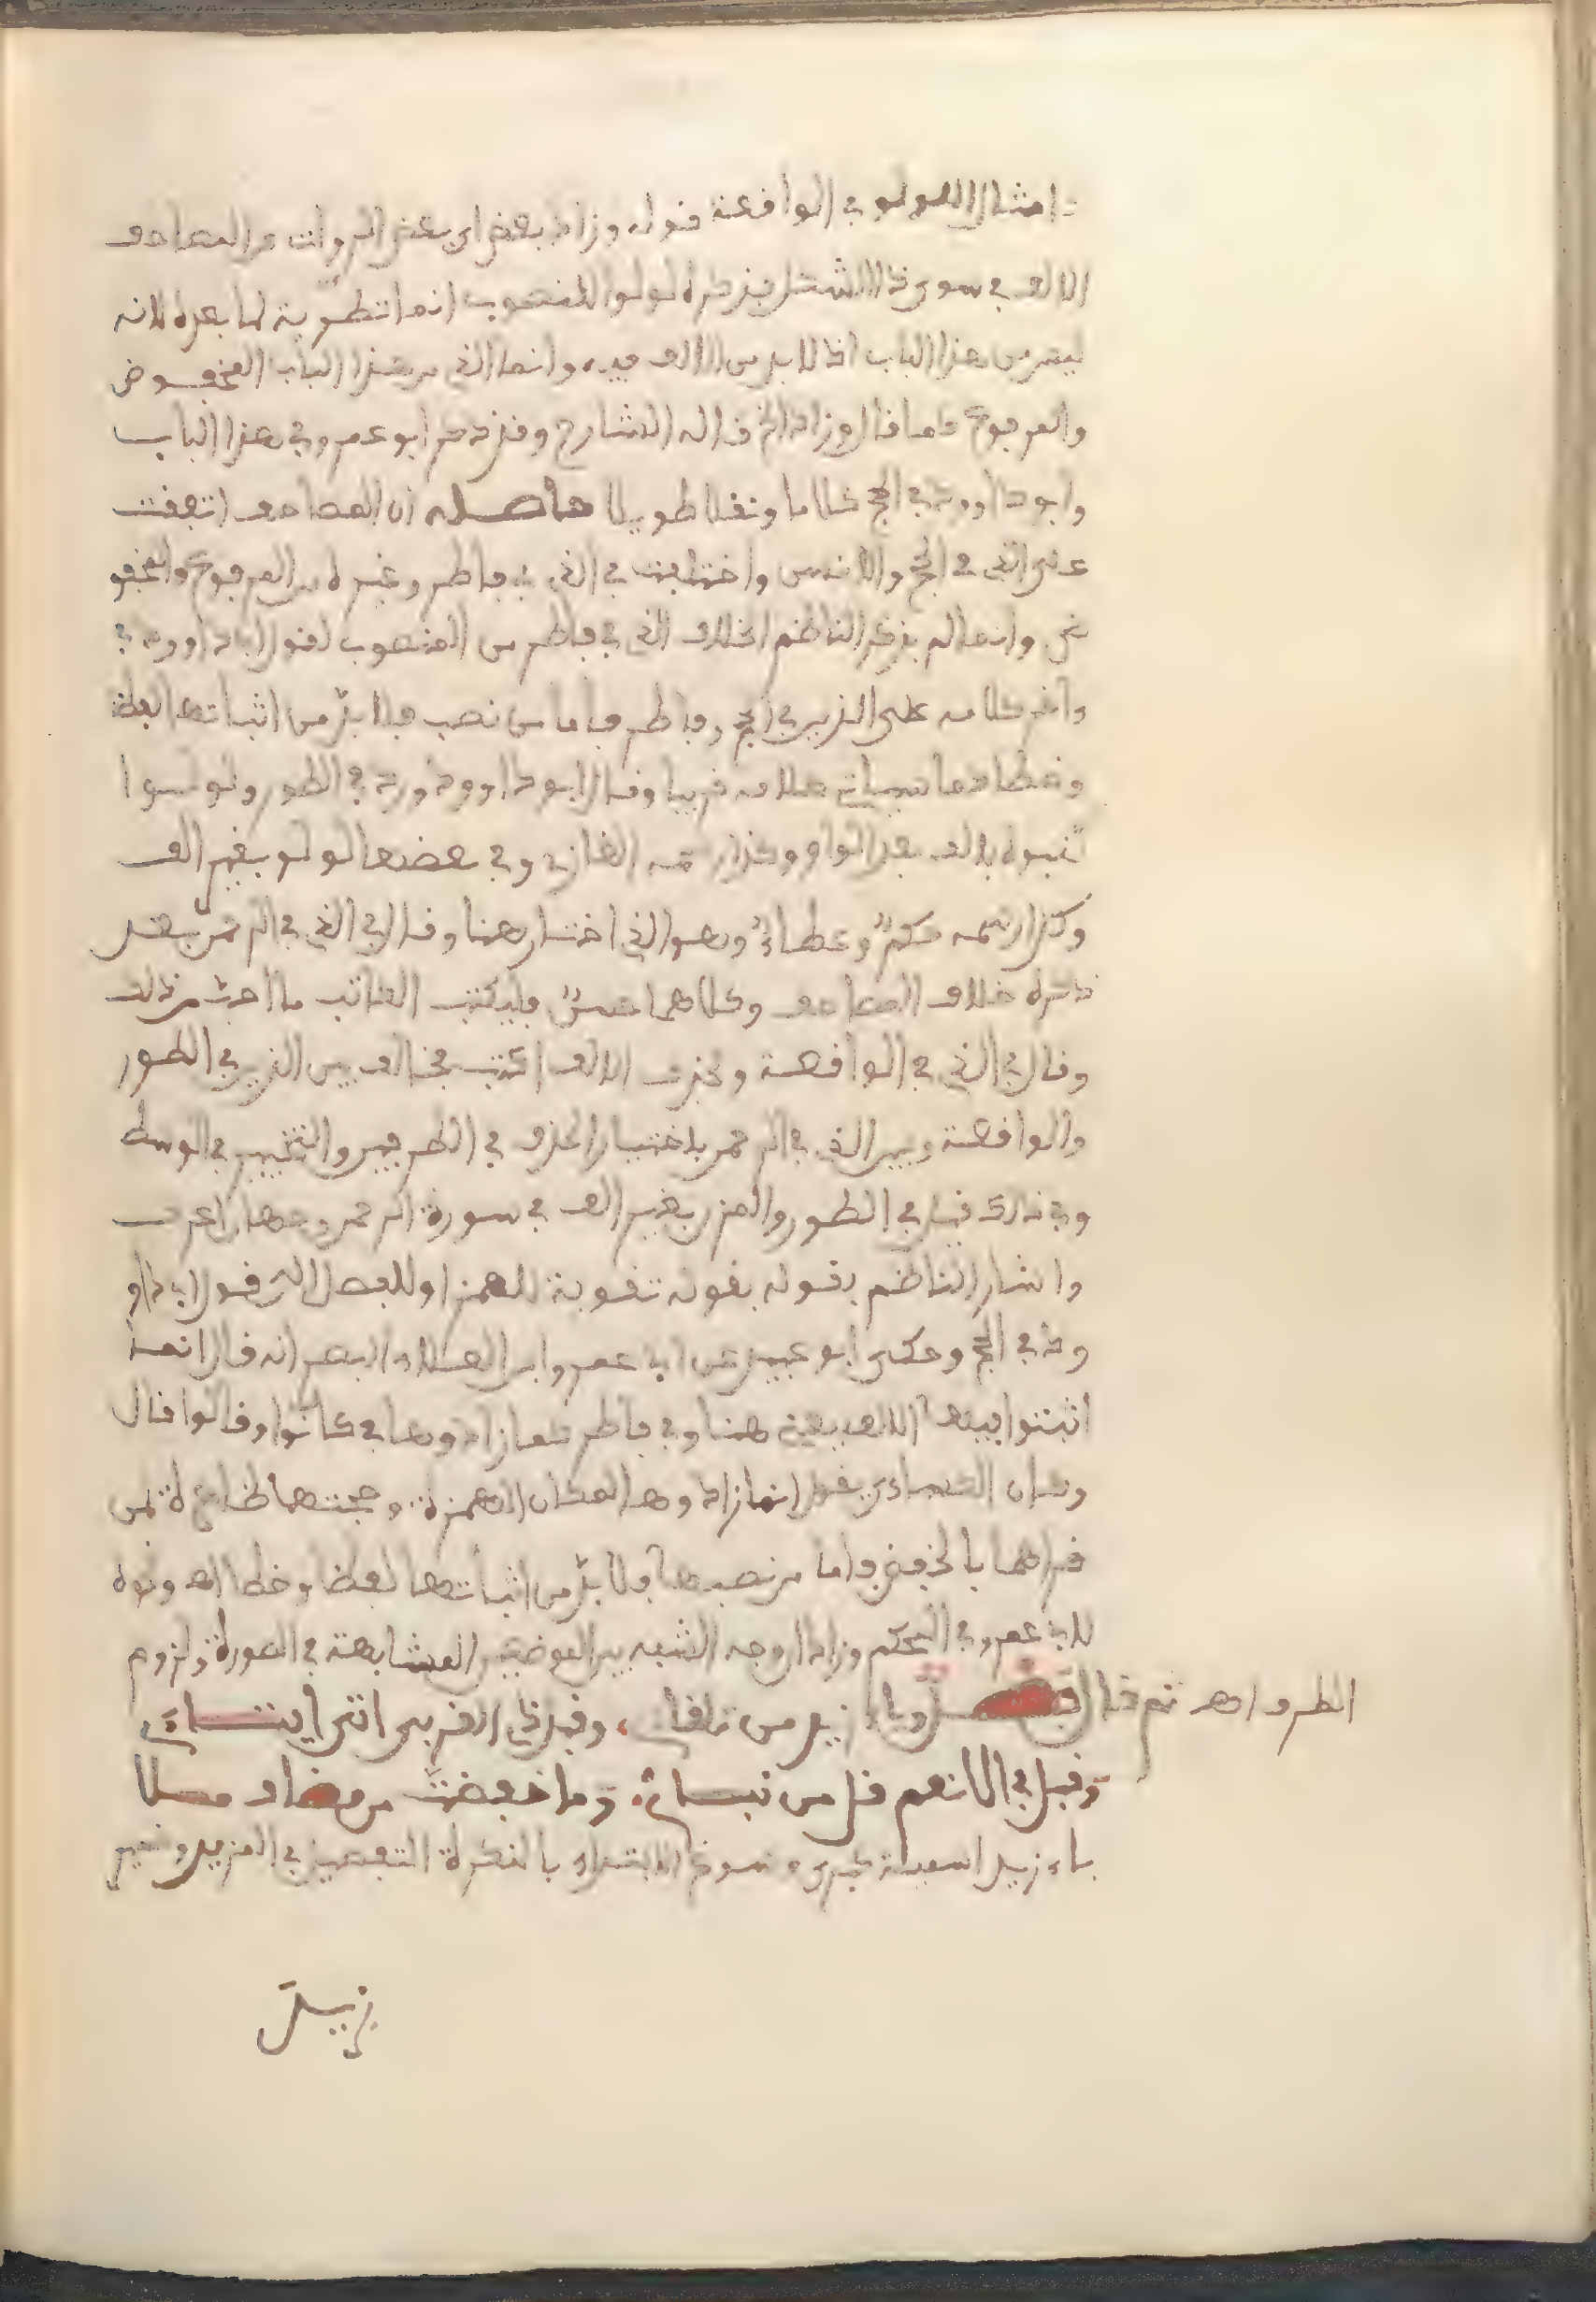 كامثال اللولو في الواقعة قوله وزاد بعض اي بعض الروات عن المصاحف
الالف في سوى ذا الشكل فذكره لولوا المنصوب انما توطية لما بعده لانه
ليس من هذا الباب اذ لا بد من الالف فيه وانما الذي من هذا الباب المخفوض
والمرفوع كما قال وزاد الخ قاله الشارح وقد ذكر ابو عمرو في هذا الباب
وابو داوود في الحج كلاما ونقلا طويلا حاصله ان المصاحف اتفقت
على الذي في الحج والانسن واختلفت في الذي في فاطر وغيره من المرفوع والمخفو
ض وانما لم يذكر الناظم الخلاف الذي في فاطر من المنصوب لقول ابي داوود في
واخر كلامه على الذين في الحج وفاطر فاما من نصب فلا بد من اثباتها لفظا
وخطا وما سياتي خلافه قريبا وقال ابو داوود ورد في الطور ولولوا
كتبوه بالف بعد الواو وكذا رسمه الغازي وفي بعضها لولو بغير الف
وكذا رسمه حكم وعطاء وهو الذي اختار هنا وقال في الذي في الرحمن بعد
ذكره خلاف المصاحف وكلاهما حسن فليكتب الكاتب ما احب من ذلك
وقال في الذي في الواقعة وبحذف الالف اكتب فخالف بين الذين في الطور
والواقعة وبين الذي في الرحمن باختيار الحذف في الطرفين والتخيير في الوسط
وفي ذلك قيل في الطور والمزن بغير الف في سورة الرحمن وجهان اعرف
واشار الناظم بقوله بقوله تقوية للهمز او للفصل الى قول ابي داو
ود في الحج وحكى ابو عبيد عن ابي عمرو ابن العلاء البصر انه قال انما
اثبتوا فيها الالف يعني هنا وفي فاطر كما زادوها في كانوا وقالوا قال
وكان الكساءي يقول انما زادوها لمكان الهمزة وحجتهما ظاهرة لمن
قراهما بالخفض واما من نصبها فلا بد من اثباتها لفظا وخطا اهـ ونحوه
لابي عمرو في المحكم وزاد اوجه الشبه بين الموضعين المشابهة في الصورة ولزوم
الطرف اهـ ثم قال فصل وياء زيد من تلقاءي وقبل ذي القربى اتى ايتاءي
وقبل في الانعم قل من نبإي وما خفضت من مضاف ملا
ياء زيد اسمية كبرى وسوغ الابتداء بالنكرة التفصيل في المزيد وغير
زيد